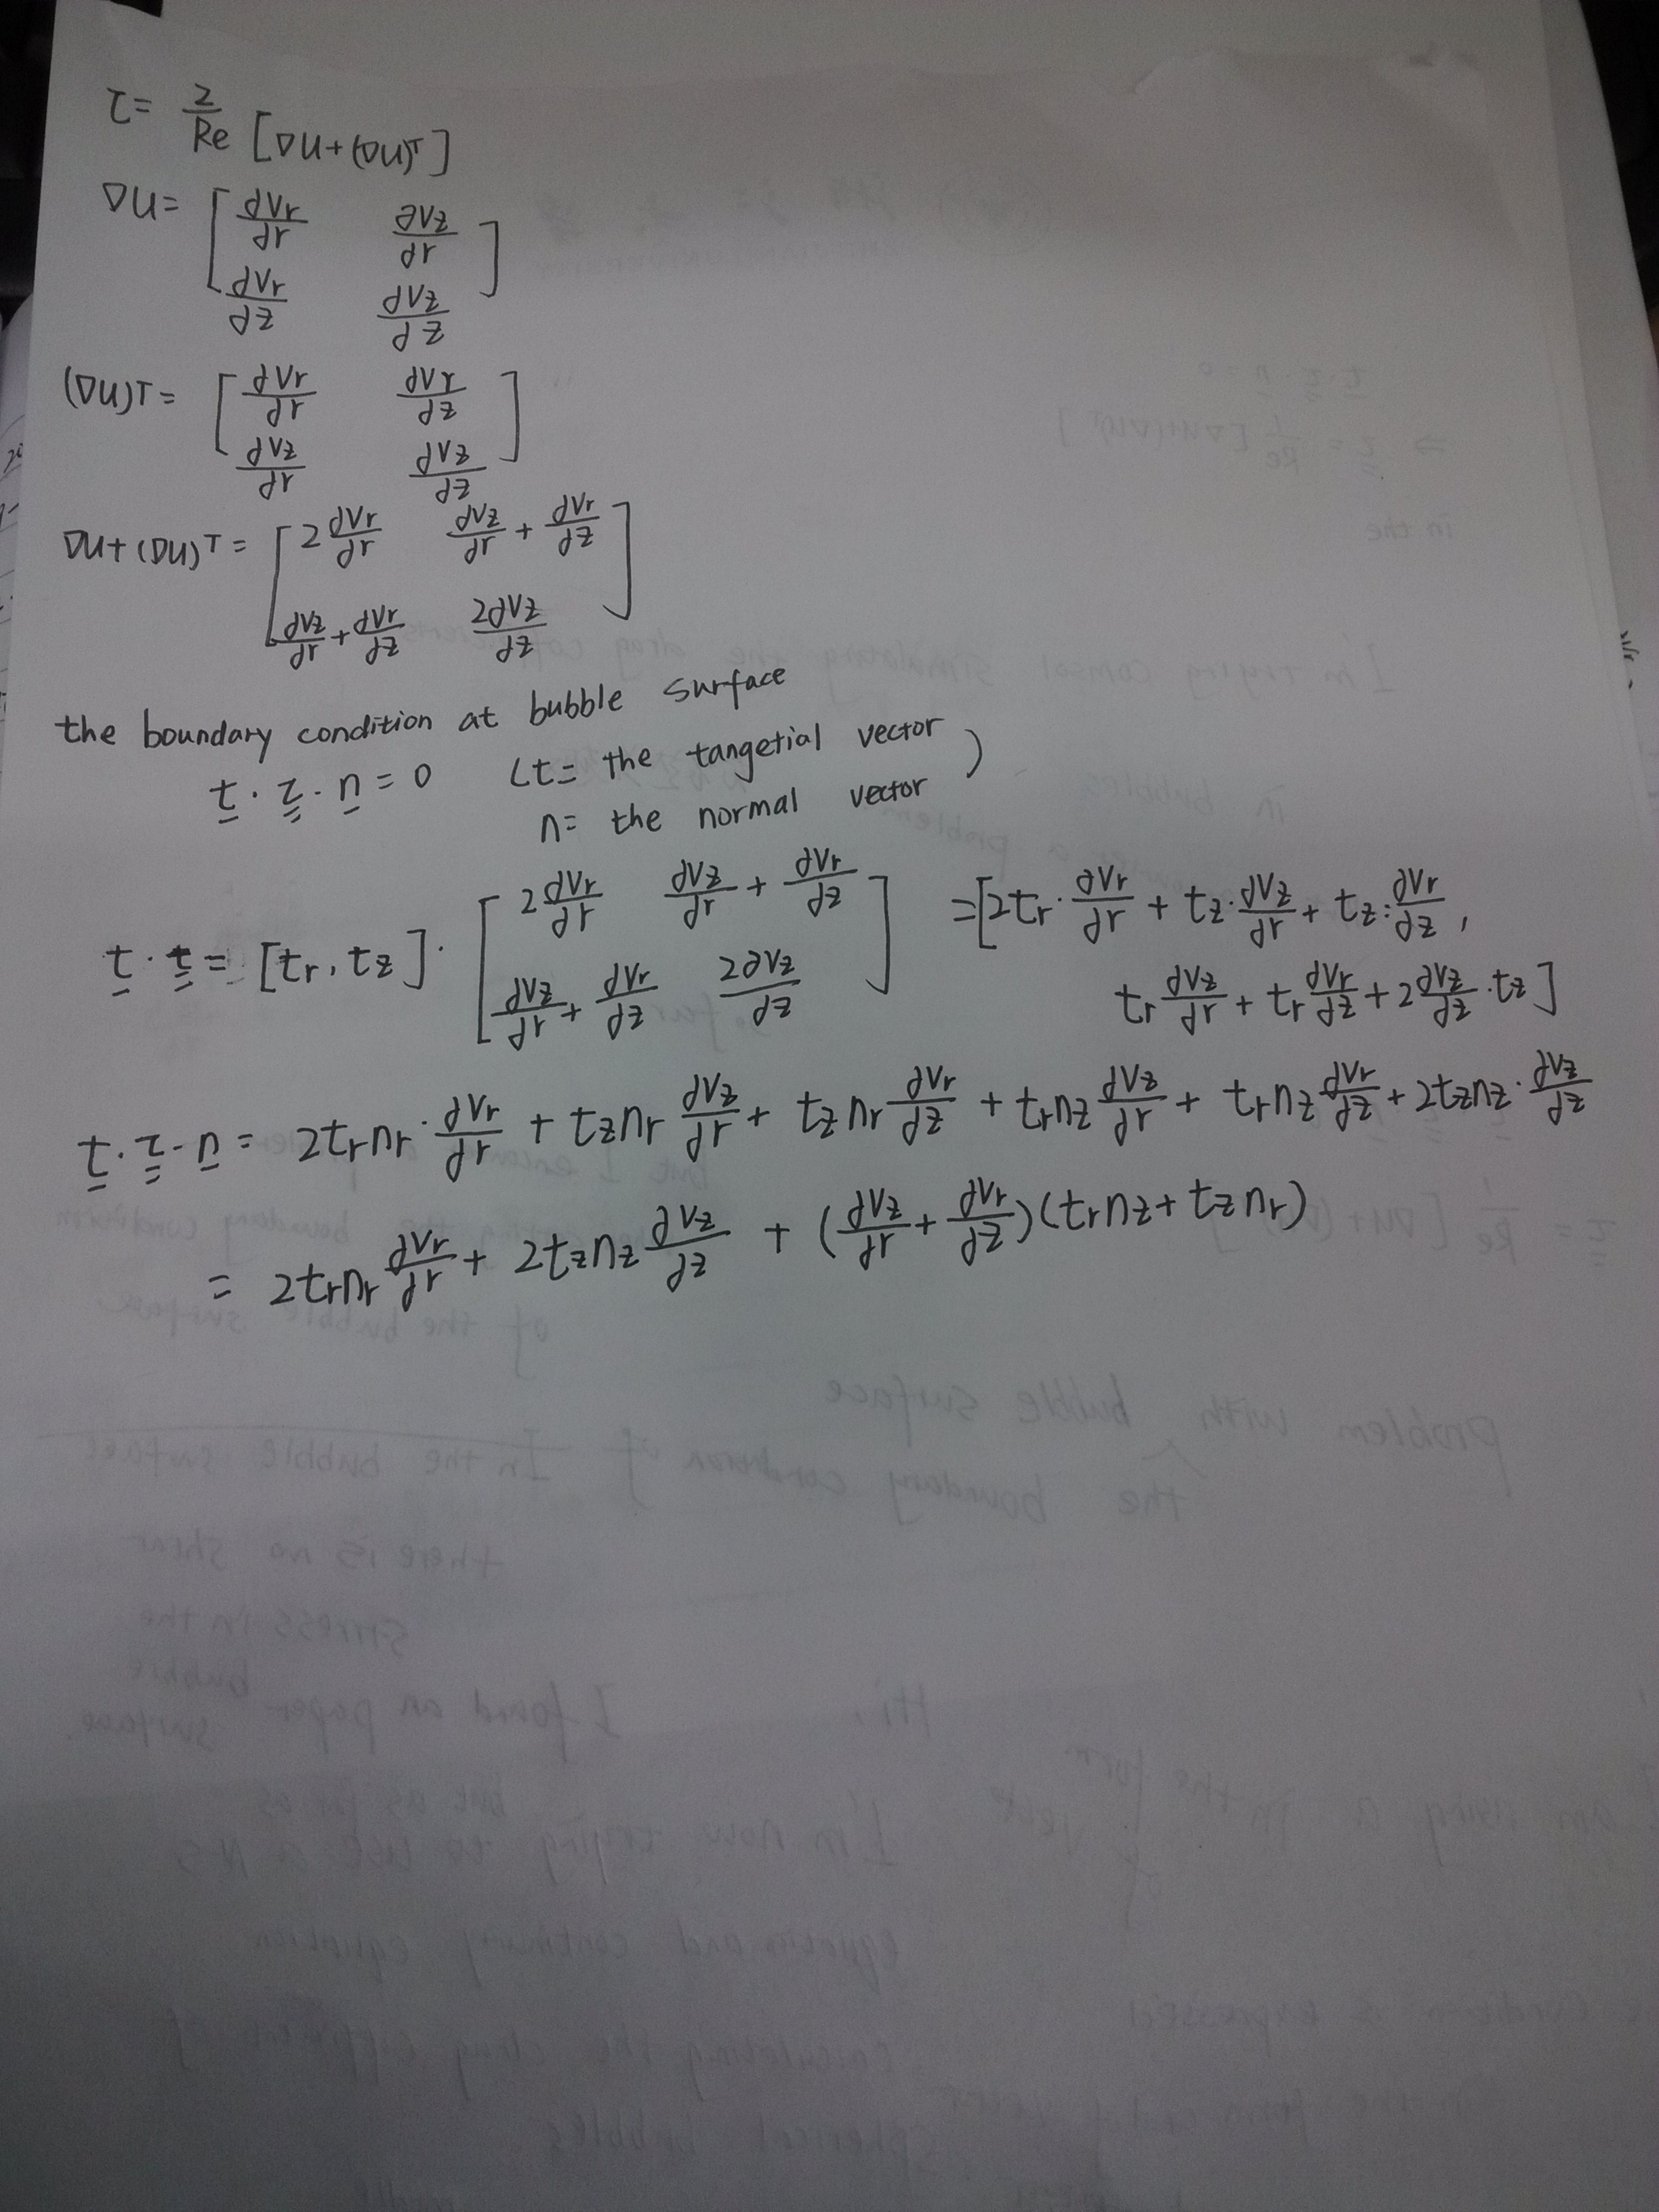 τ= 2/Re [∇U+(∇U)ᵀ]
∇U= [∂Vr/∂r ∂Vz/∂r
∂Vr/∂z ∂Vz/∂z]
(∇U)ᵀ= [∂Vr/∂r ∂Vr/∂z
∂Vz/∂r ∂Vz/∂z]
∇U+(∇U)ᵀ= [2∂Vr/∂r ∂Vz/∂r+∂Vr/∂z
∂Vz/∂r+∂Vr/∂z 2∂Vz/∂z]
the boundary condition at bubble surface
t·τ·n=0 (t= the tangetial vector
n= the normal vector)
t·τ= [tr, tz]· [2∂Vr/∂r ∂Vz/∂r+∂Vr/∂z =[2tr·∂Vr/∂r + tz·∂Vz/∂r + tz·∂Vr/∂z,
∂Vz/∂r+∂Vr/∂z 2∂Vz/∂z] tr∂Vz/∂r + tr∂Vr/∂z + 2∂Vz/∂z·tz]
t·τ·n= 2trnr·∂Vr/∂r + tznr∂Vz/∂r + tznr∂Vr/∂z + trnz∂Vz/∂r + trnz∂Vr/∂z + 2tznz·∂Vz/∂z
= 2trnr∂Vr/∂r + 2tznz∂Vz/∂z + (∂Vz/∂r+∂Vr/∂z)(trnz+tznr)